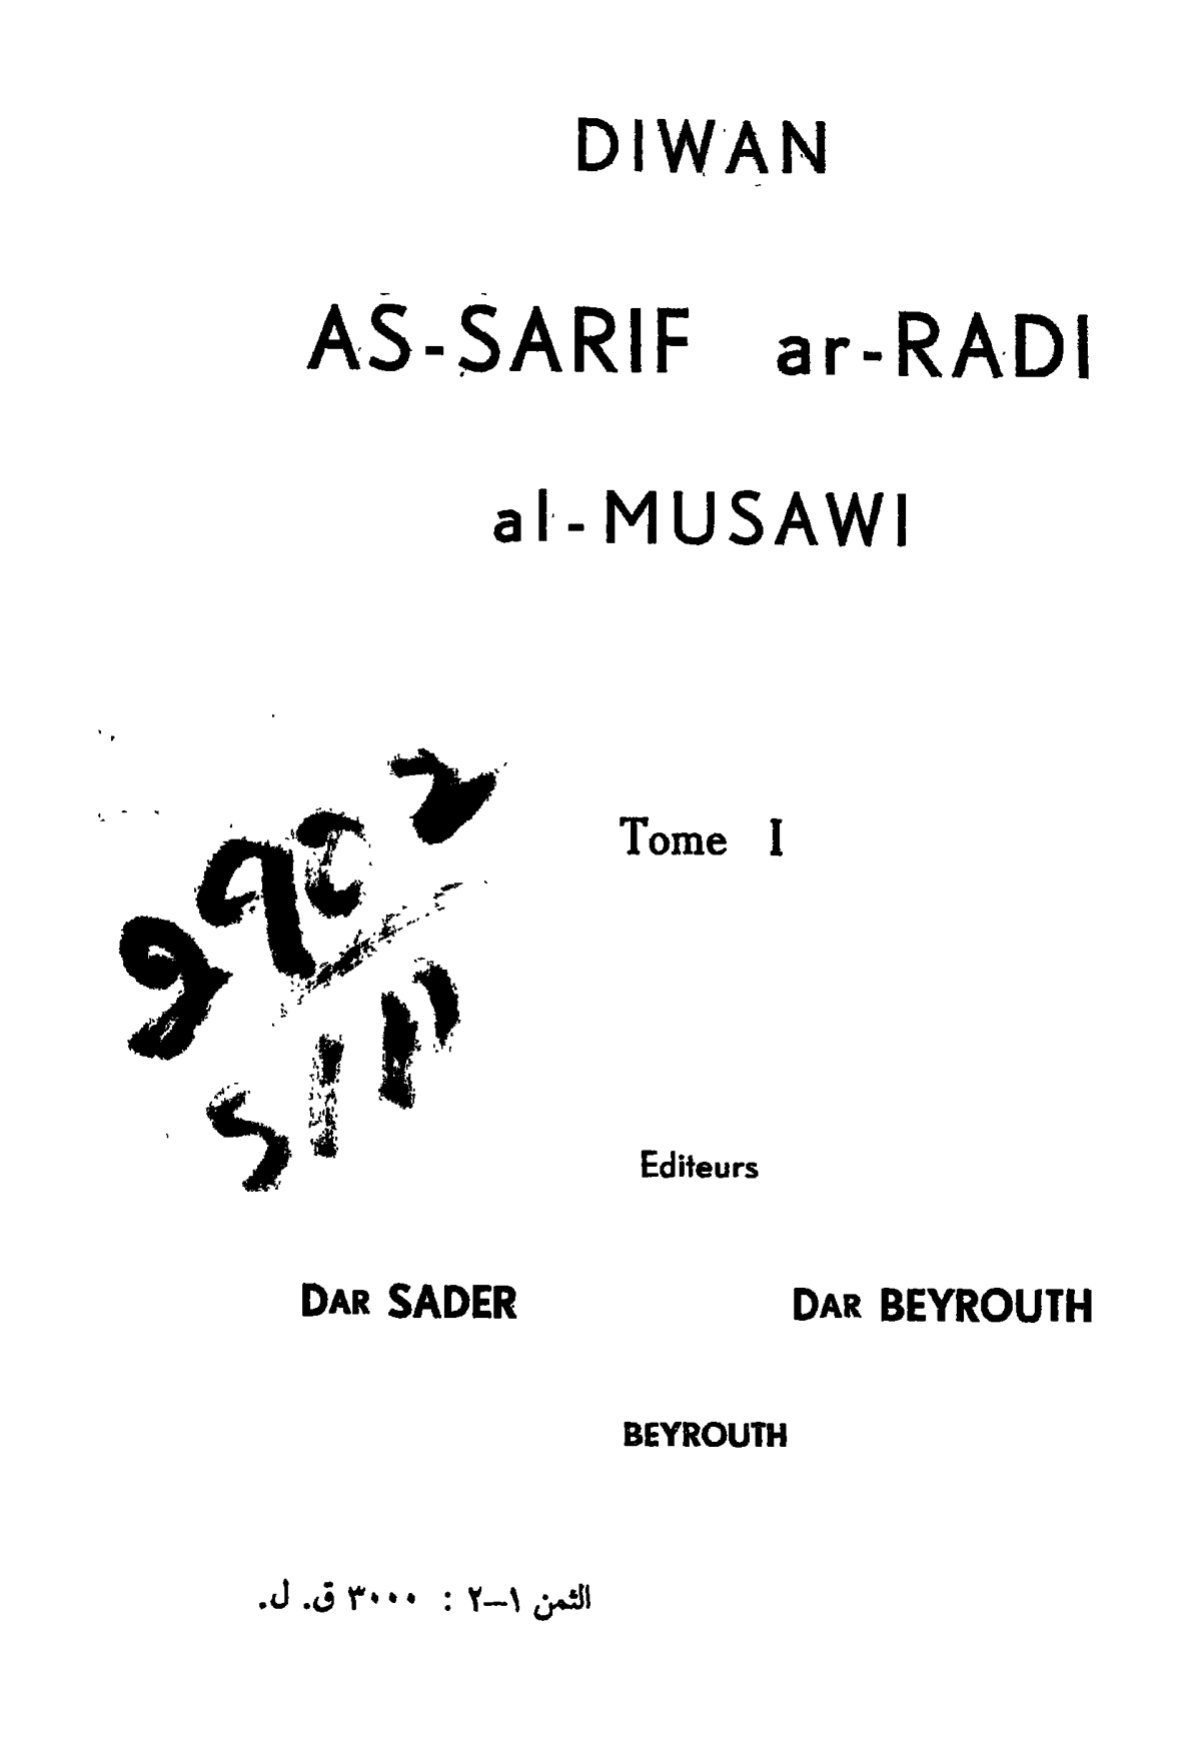 DIWAN
AS-SARIF ar-RADI
al-MUSAWI
Tome I
Editeurs
DAR SADER DAR BEYROUTH
BEYROUTH
الثمن ١–٢ : ٣٠٠٠ ق. ل.